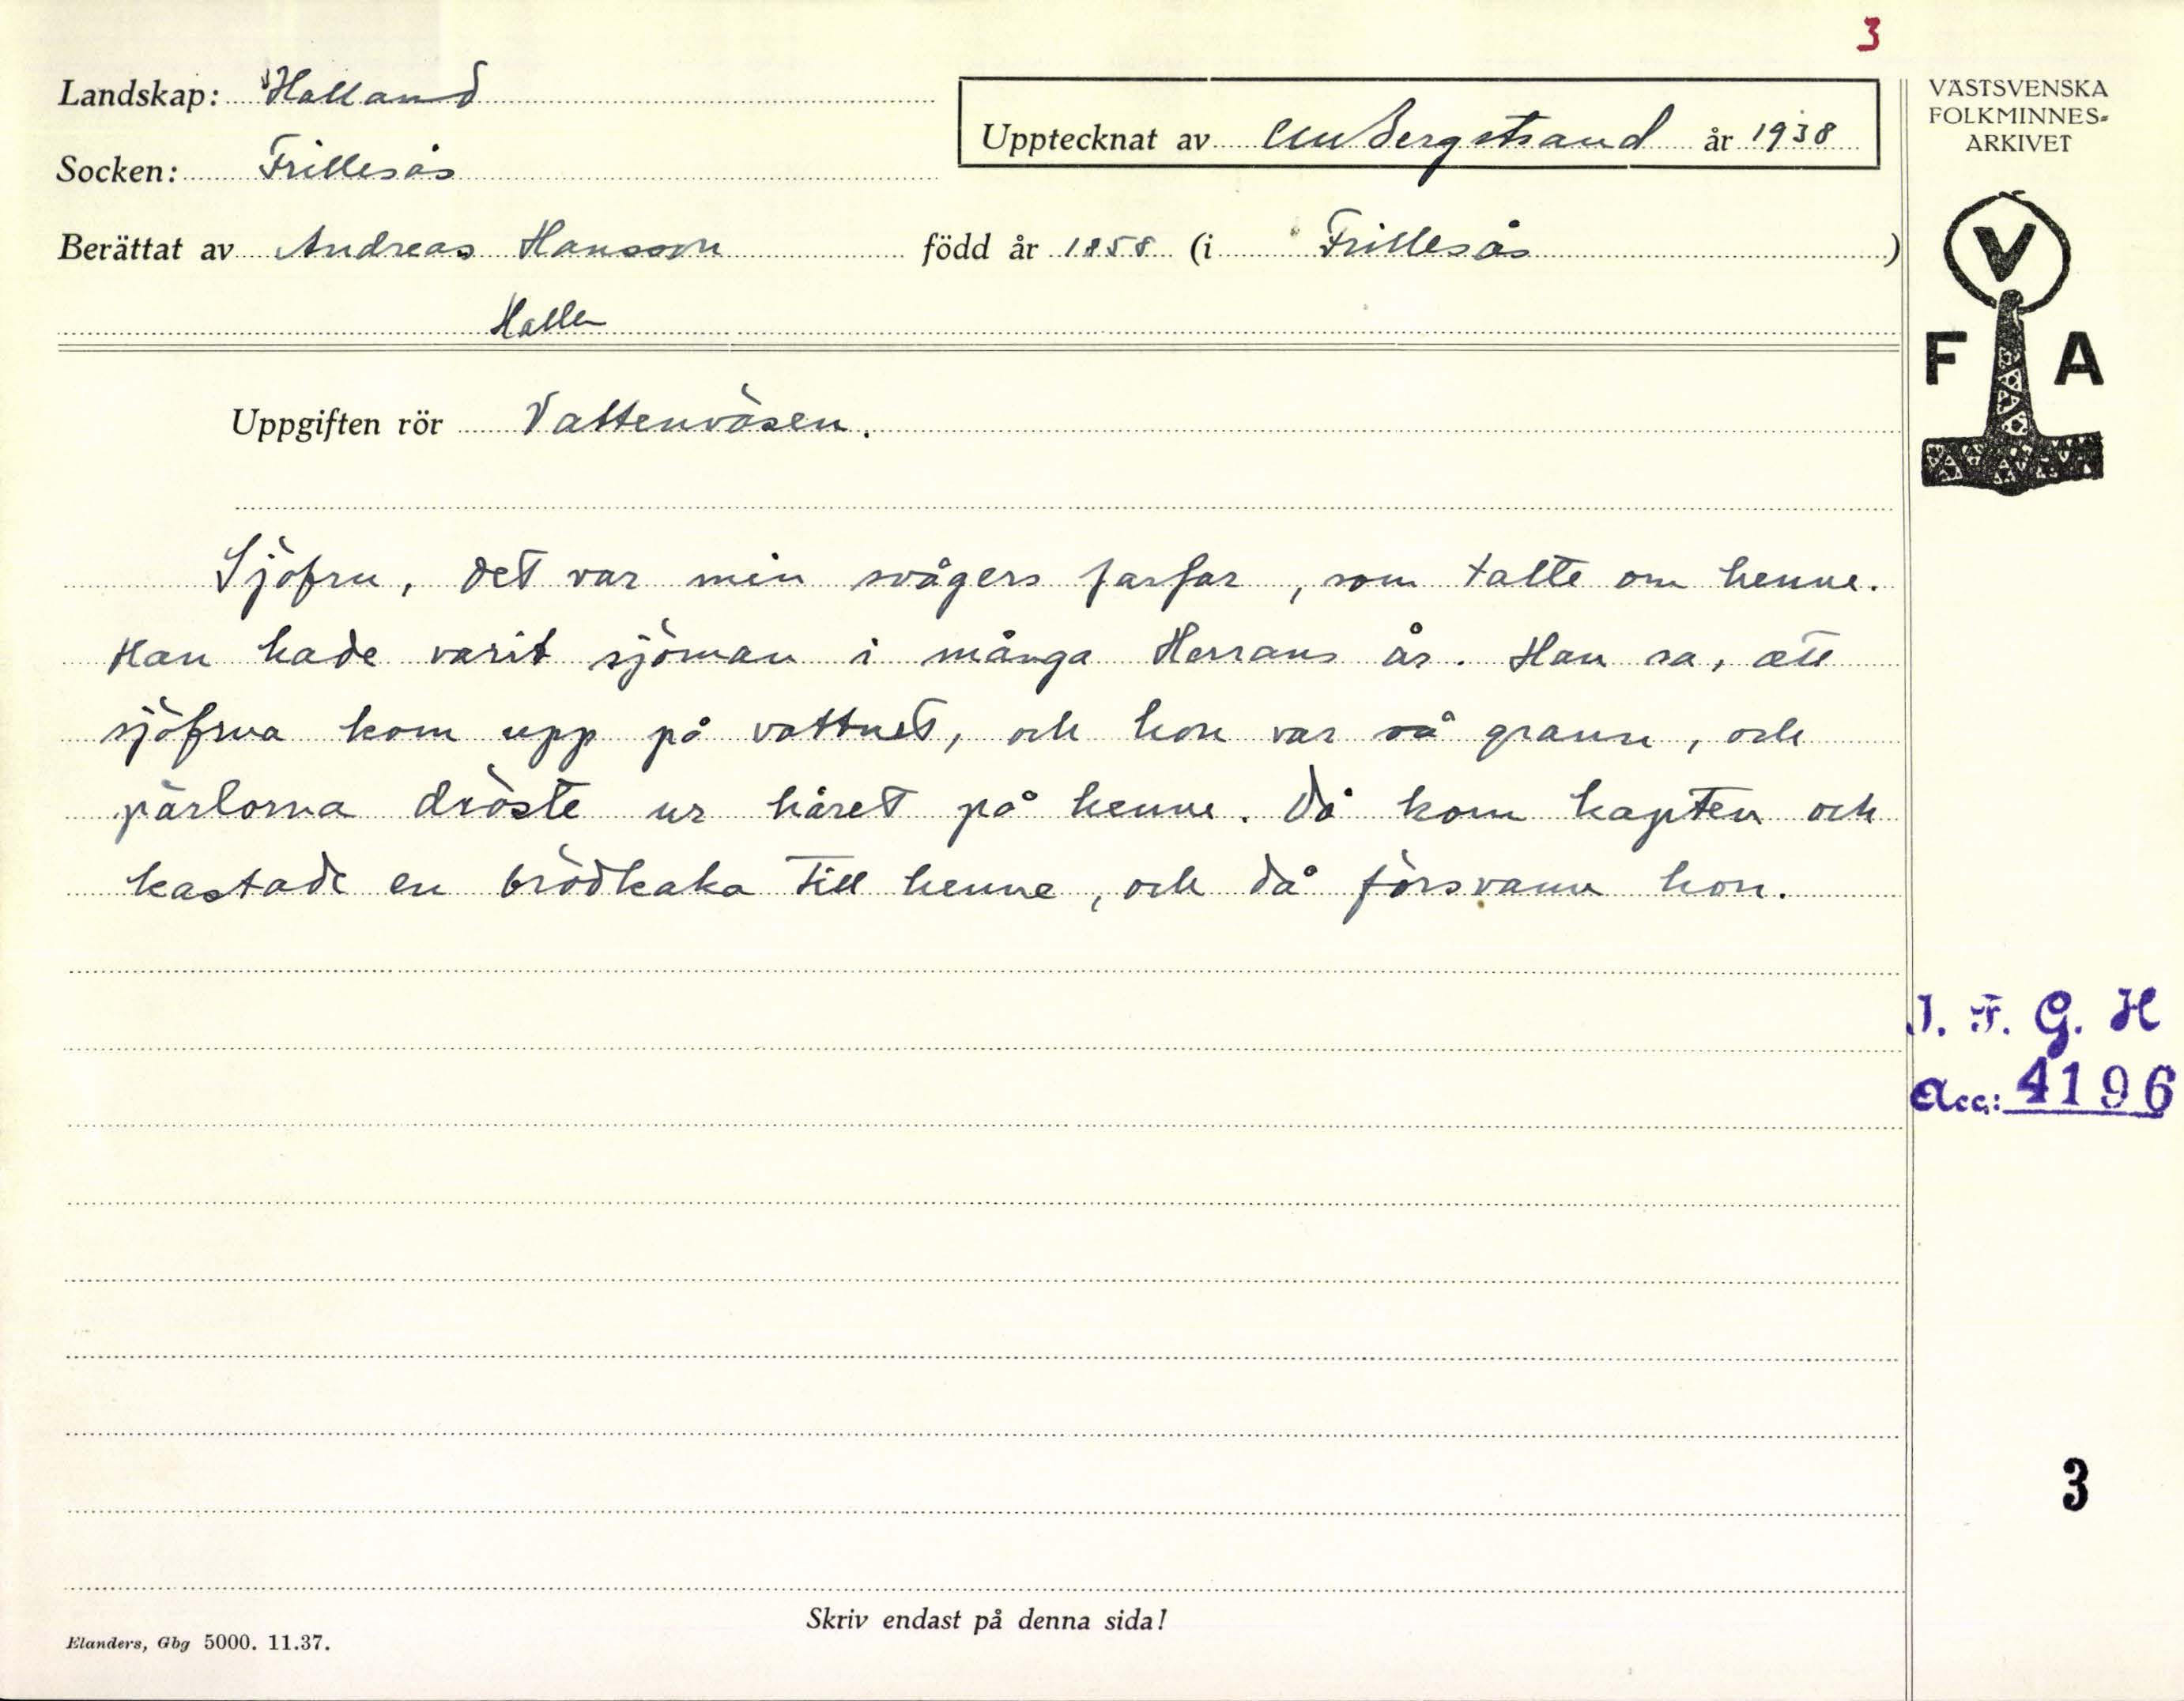 3
Landskap: Halland
Upptecknat av CM Bergstrand år 1938
VÄSTSVENSKA
FOLKMINNES-
ARKIVET
Socken: Frillesås
Berättat av Andreas Hansson född år 1858 (i Frillesås)
Halla
V
F A
Uppgiften rör Vattenväsen.
Sjöfru, det var min svågers farfar, som talte om henne.
Han hade varit sjöman i många Herrans år. Han sa, att
sjöfrua kom upp på vattnet, och hon var så grann, och
pärlorna dröste ur håret på henne. Då kom kapten och
kastade en brödkaka till henne, och då försvann hon.
I. F. G. H
Acc: 4196
3
Skriv endast på denna sida!
Elanders, Gbg 5000. 11.37.